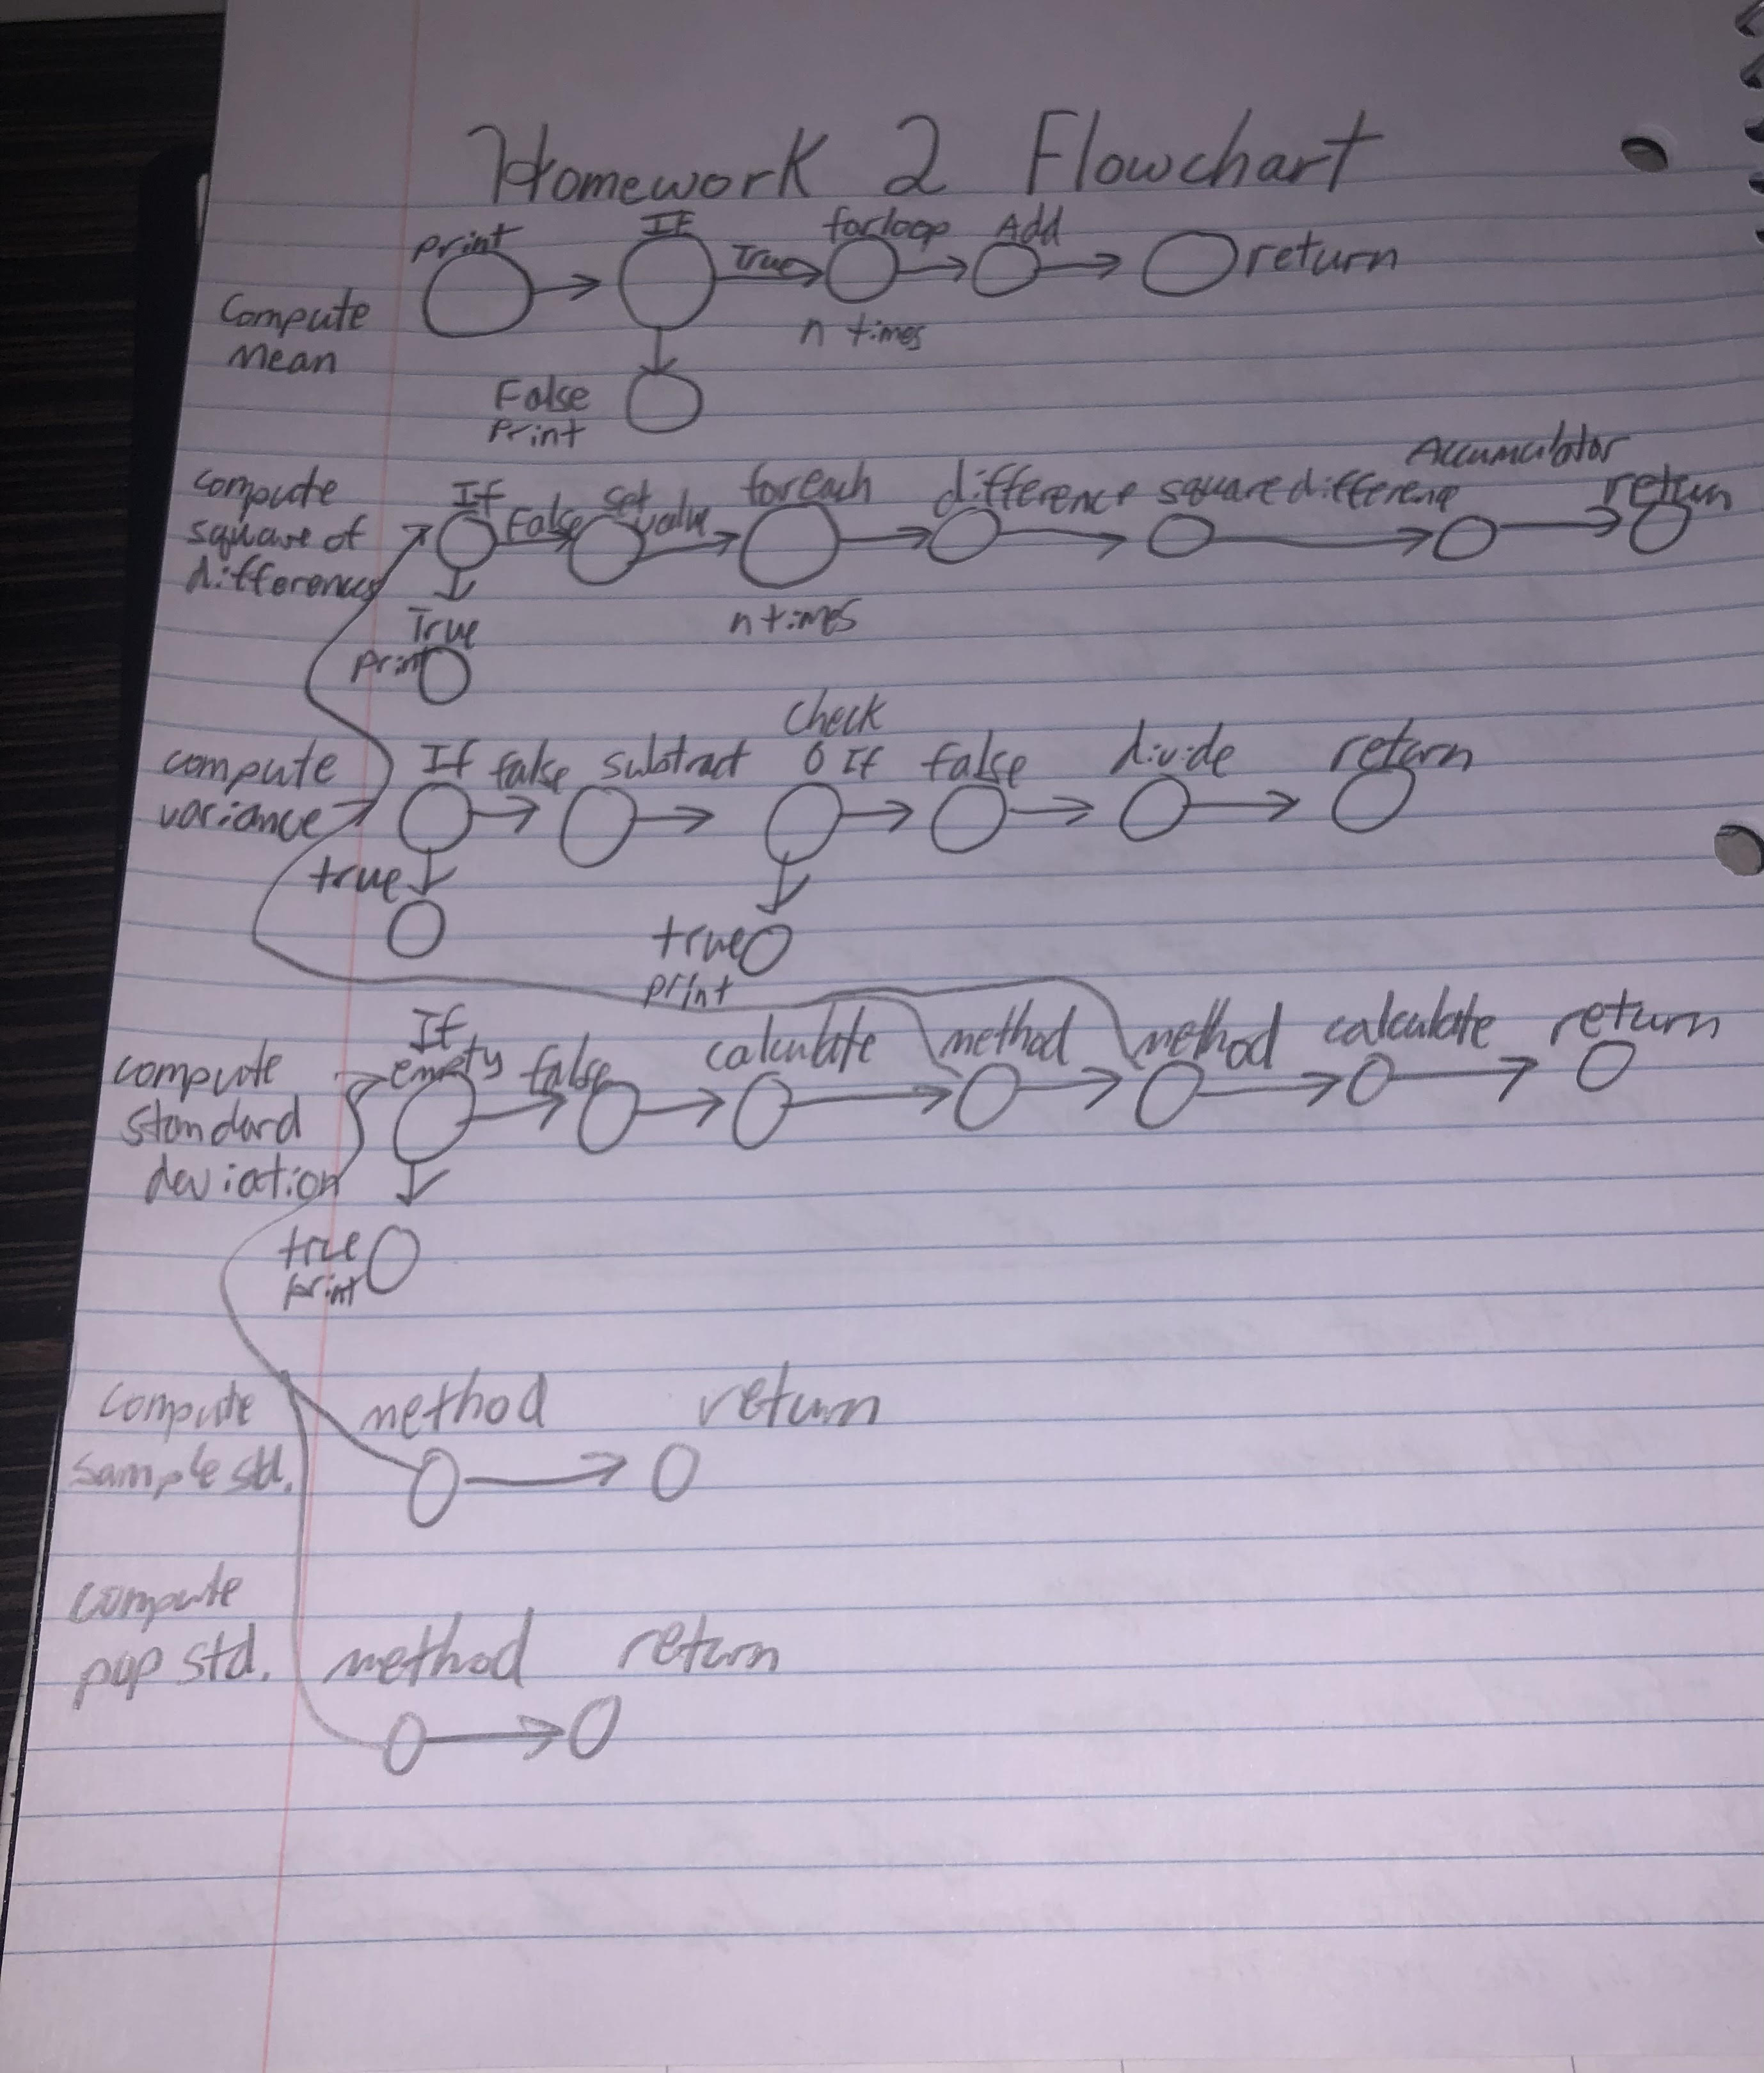 Homework 2 Flowchart
print If True for loop Add return
Compute
Mean
n times
False
Print
Accumulator
compute
square of
differences
If False set value for each difference square difference return
n times
True
print
Check
compute
variance
If false subtract 0 If false divide return
true
true
print
If
compute
standard
deviation
empty false calculate method method calculate return
true
print
compute
sample std.
method return
compute
pop std.
method return